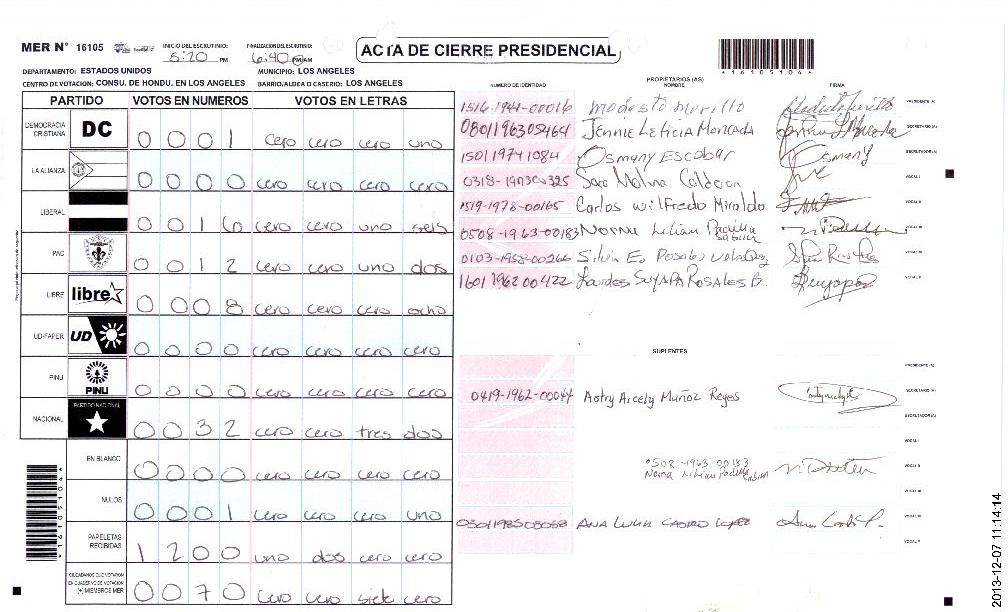 MER N° 16105
INICIO DEL ESCRUTINIO: 5:20 PM
FINALIZACIÓN DEL ESCRUTINIO: 6:40 PM/AM
ACTA DE CIERRE PRESIDENCIAL
16105104
DEPARTAMENTO: ESTADOS UNIDOS
MUNICIPIO: LOS ANGELES
CENTRO DE VOTACION: CONSU. DE HONDU. EN LOS ANGELES
BARRIO/ALDEA O CASERIO: LOS ANGELES
PARTIDO VOTOS EN NUMEROS VOTOS EN LETRAS
DEMOCRACIA CRISTIANA DC 0 0 0 1 cero cero cero uno
LA ALIANZA 0 0 0 0 cero cero cero cero
LIBERAL 0 0 1 6 cero cero uno seis
PAC 0 0 1 2 cero cero uno dos
LIBRE libre 0 0 0 8 cero cero cero ocho
UD-FAPER UD 0 0 0 0 cero cero cero cero
PINU PINU 0 0 0 0 cero cero cero cero
NACIONAL PARTIDO NACIONAL 0 0 3 2 cero cero tres dos
EN BLANCO 0 0 0 0 cero cero cero cero
NULOS 0 0 0 1 cero cero cero uno
PAPELETAS RECIBIDAS 1 2 0 0 uno dos cero cero
CIUDADANOS QUE VOTARON EN CUADERNO DE VOTACION (+) MIEMBROS MER 0 0 7 0 cero cero siete cero
16105104
PROPIETARIOS (AS)
NUMERO DE IDENTIDAD NOMBRE FIRMA
1516-1941-00016 Modesto Murillo PRESIDENTE (A)
0801196305464 Jennie Leticia Moncada SECRETARIO (A)
1501197411084 Osmany Escobar Osmany ESCRUTADOR (A)
Sara Molina Calderon VOCAL I
1519-1978-00165 Carlos Wilfredo Miraldo VOCAL II
0508-1963-00183 Norma Lilian Padilla VOCAL III
0103-1958-00266 Silvia
1601196200422 Lourdes SUYAPA ROSALES B.
SUPLENTES
PRESIDENTE (A)
0419-1962-00044 Astry Arcely Muñoz Reyes SECRETARIO (A)
ESCRUTADOR (A)
VOCAL I
0508-1963-00183
Norma Lilian Padilla VOCAL II
ANA CASTRO LOPEZ
2013-12-07 11:14:14